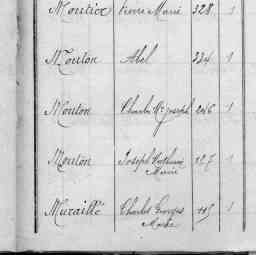 Moutier Pierre Marie 328 1
Mouton Abel 334 1
Mouton Charles Me Joseph 246 1
Mouton Joseph Marie 127 1
Muraillé Charles Georges 115 1